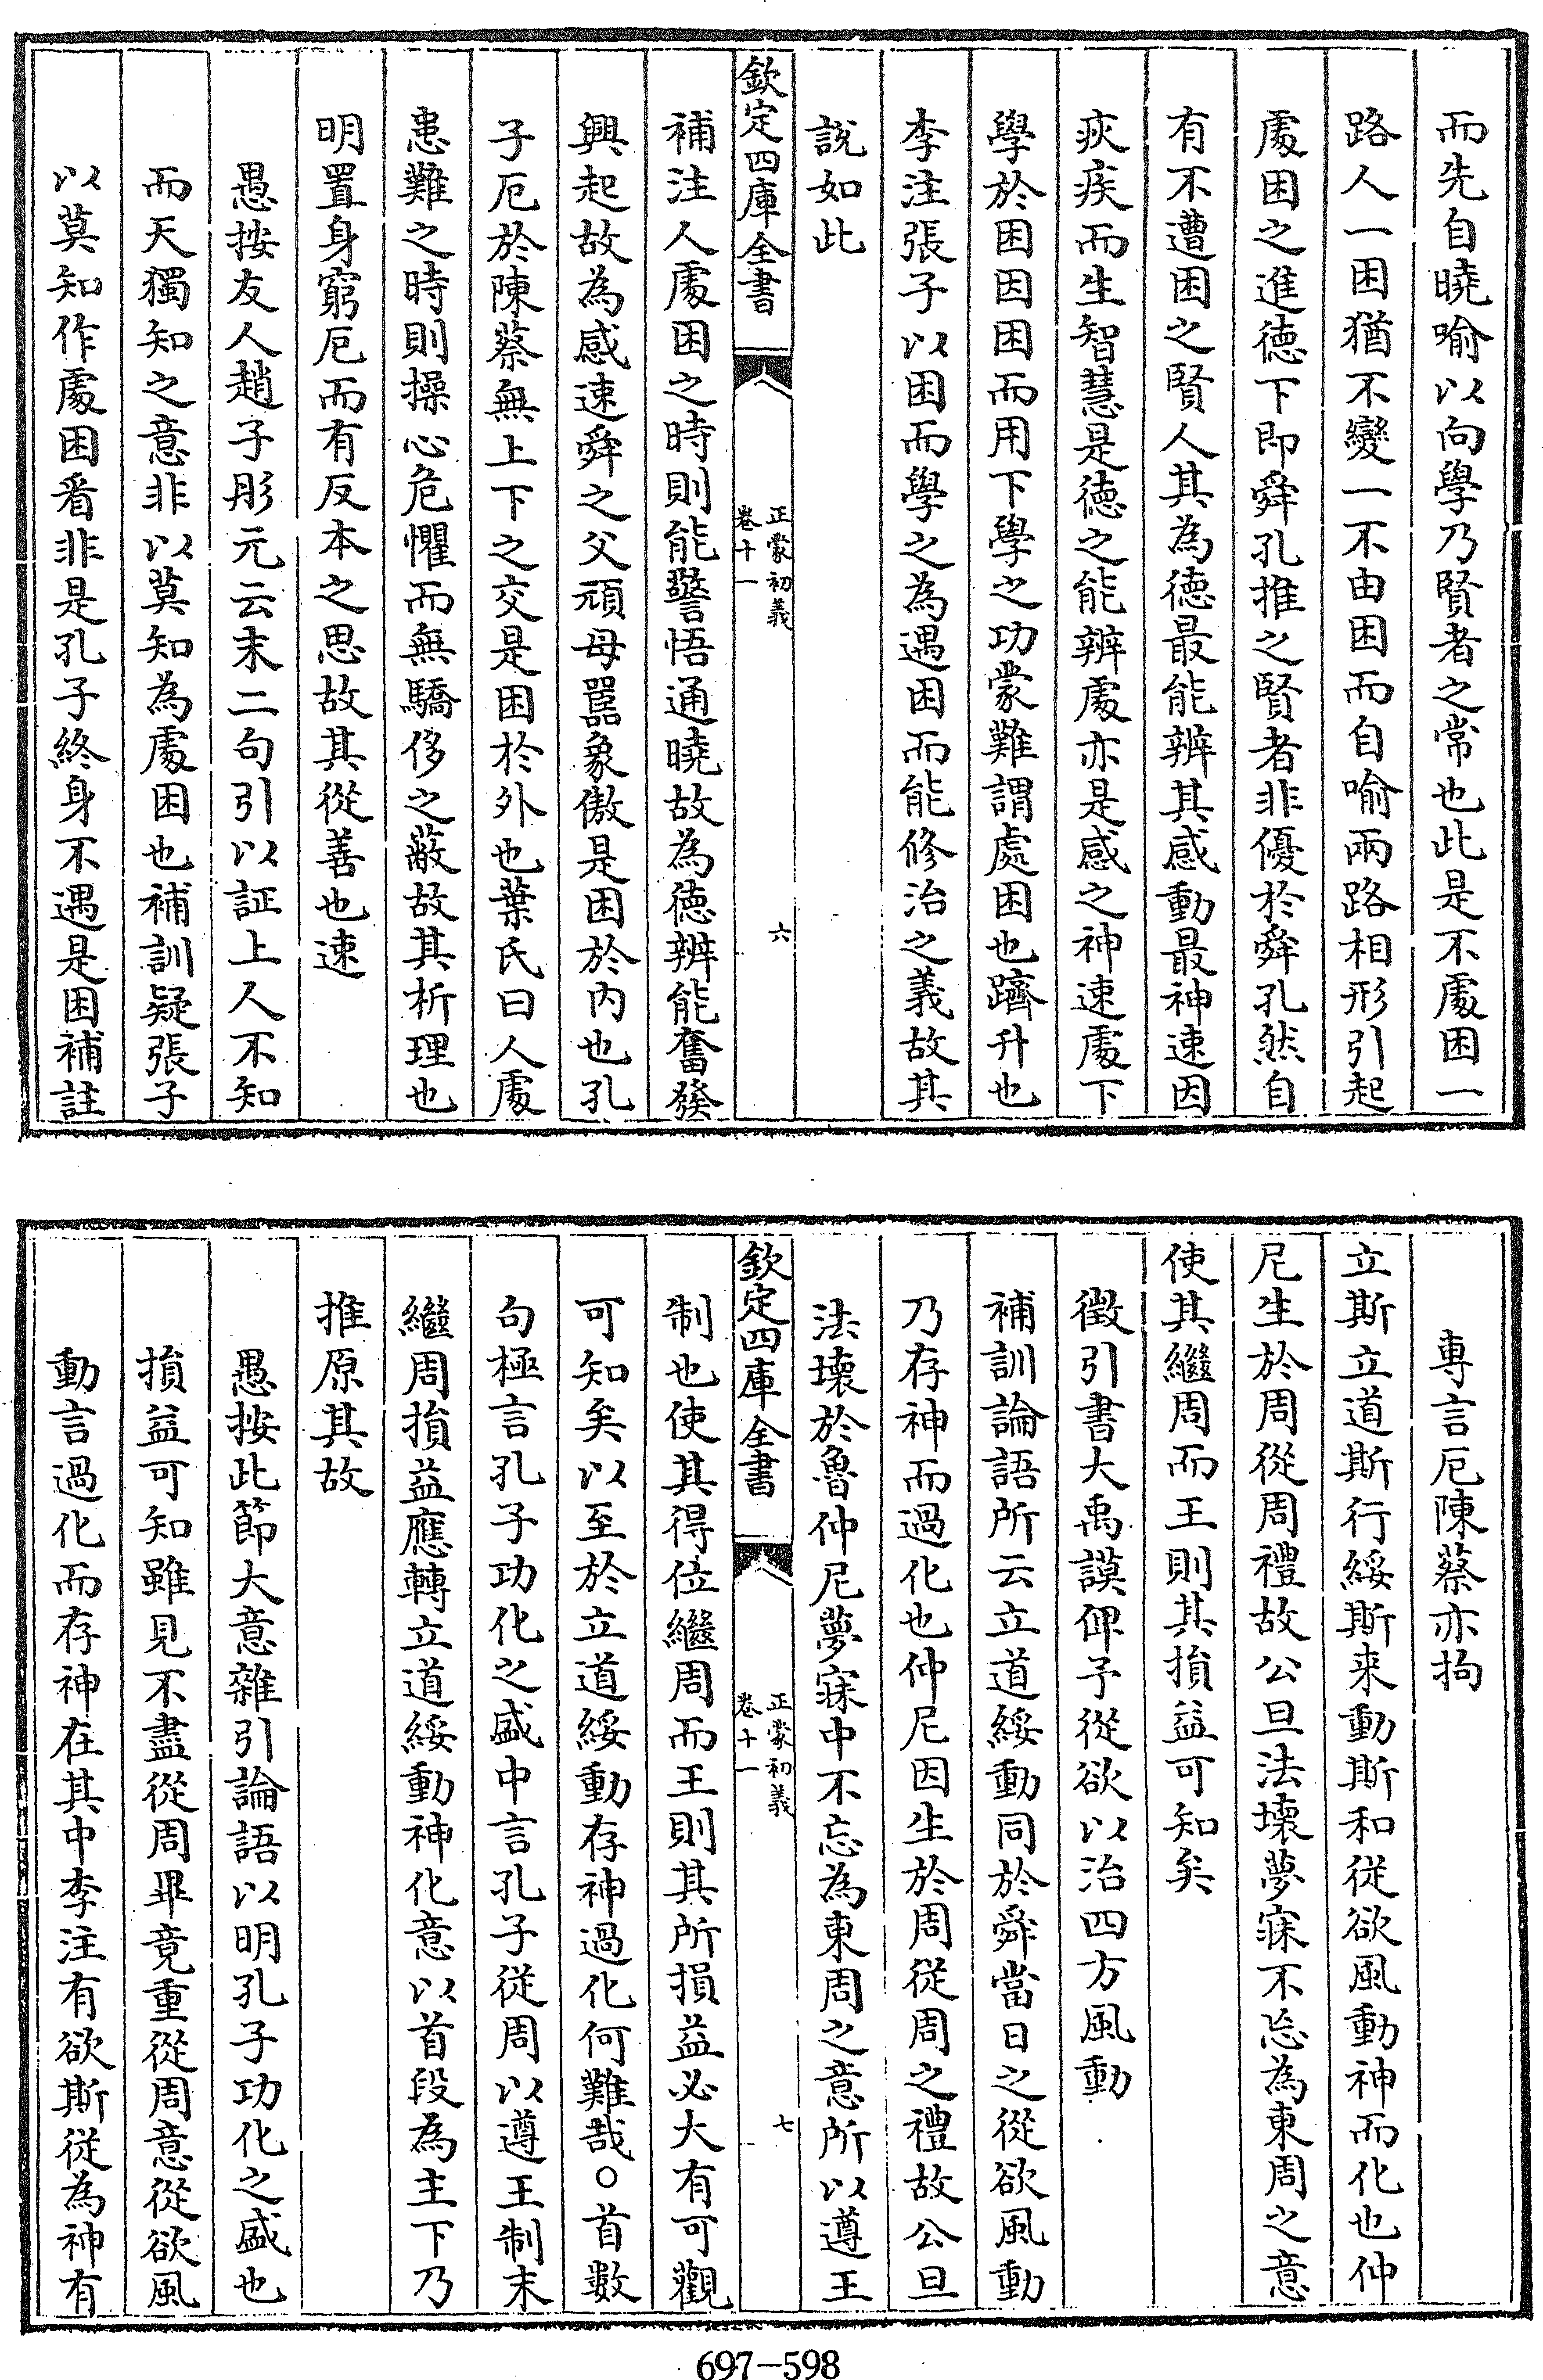 而先自曉喻以向學乃賢者之常也此是不處困一
路人一困猶不變一不由困而自喻兩路相形引起
處困之進德下即舜孔推之賢者非優於舜孔然自
有不遭困之賢人其為德最能辨其感動最神速因
疢疾而生智慧是德之能辨處亦是感之神速處下
學於困因困而用下學之功蒙難謂處困也躋升也
李注張子以困而學之為遇困而能修治之義故其
說如此
欽定四庫全書
正蒙初義
卷十一
六
補注人處困之時則能警悟通曉故為德辨能奮發
興起故為感速舜之父頑母嚚象傲是困於內也孔
子厄於陳蔡無上下之交是困於外也葉氏曰人處
患難之時則操心危懼而無驕侈之蔽故其析理也
明置身窮厄而有反本之思故其從善也速
愚按友人趙子彤元云末二句引以証上人不知
而天獨知之意非以莫知為處困也補訓疑張子
以莫知作處困看非是孔子終身不遇是困補註
專言厄陳蔡亦拘
立斯立道斯行綏斯来動斯和從欲風動神而化也仲
尼生於周從周禮故公旦法壞夢寐不忘為東周之意
使其繼周而王則其損益可知矣
徵引書大禹謨俾予從欲以治四方風動
補訓論語所云立道綏動同於舜當日之從欲風動
乃存神而過化也仲尼因生於周從周之禮故公旦
法壞於魯仲尼夢寐中不忘為東周之意所以遵王
欽定四庫全書
正蒙初義
卷十一
七
制也使其得位繼周而王則其所損益必大有可觀
可知矣以至於立道綏動存神過化何難哉○首數
句極言孔子功化之盛中言孔子從周以遵王制末
繼周損益應轉立道綏動神化意以首段為主下乃
推原其故
愚按此節大意雜引論語以明孔子功化之盛也
損益可知雖見不盡從周畢竟重從周意從欲風
動言過化而存神在其中李注有欲斯從為神有
697-598